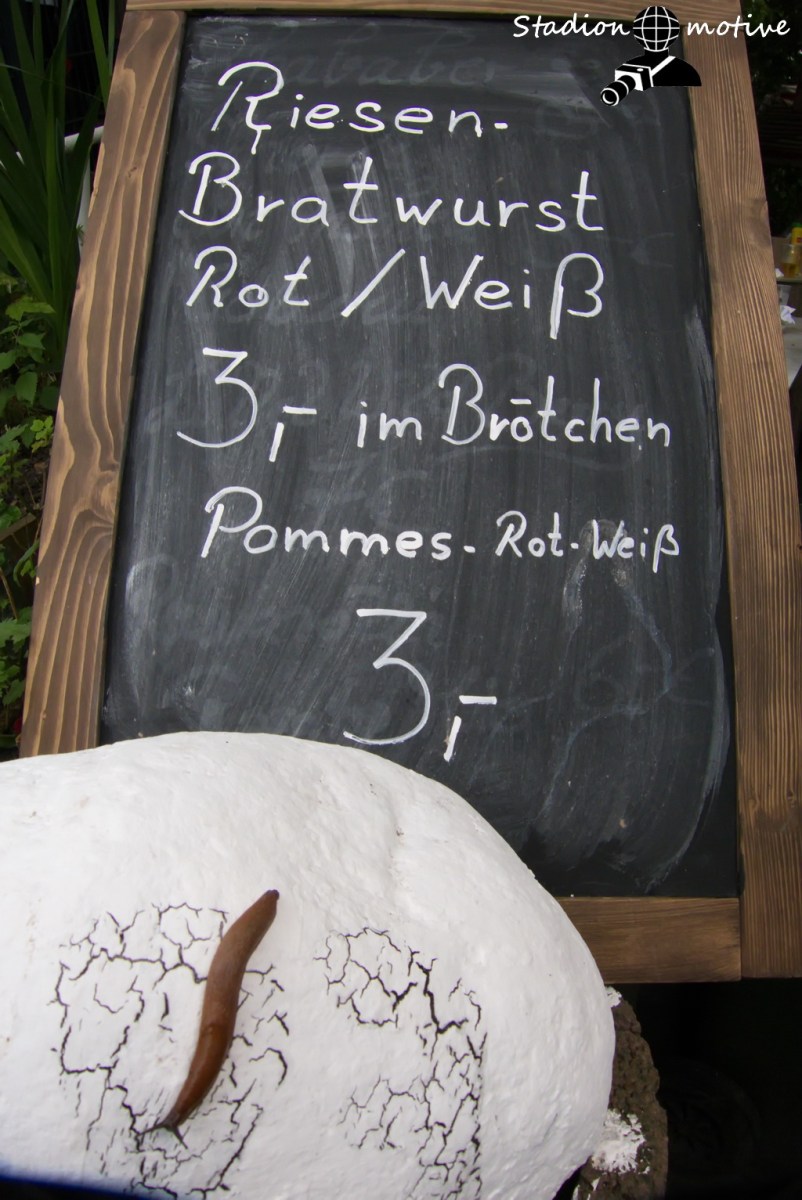 Stadion motive
Riesen-
Bratwurst
Rot / Weiß
3,- im Brötchen
Pommes-Rot-Weiß
3,-